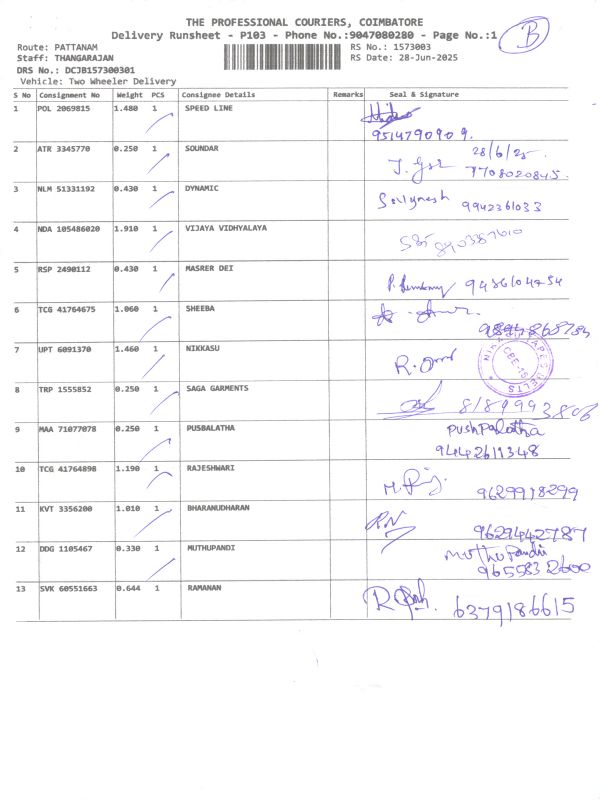 THE PROFESSIONAL COURIERS, COIMBATORE
Delivery Runsheet - P103 - Phone No.:9047080280 - Page No.:1
B
Route: PATTANAM
RS No.: 1573003
Staff: THANGARAJAN
RS Date: 28-Jun-2025
DRS No.: DCJB157300301
Vehicle: Two Wheeler Delivery
S No Consignment No Weight PCS Consignee Details Remarks Seal & Signature
1 POL 2069815 1.480 1 SPEED LINE
9514790909.
2 ATR 3345770 0.250 1 SOUNDAR 28/6/25.
7708020845.
3 NLM 51331192 0.430 1 DYNAMIC
9942361033
4 NDA 105486020 1.910 1 VIJAYA VIDHYALAYA
5 RSP 2490112 0.430 1 MASRER DEI
9486104754
6 TCG 41764675 1.060 1 SHEEBA
7 UPT 6091370 1.460 1 NIKKASU
CBE-16
8 TRP 1555852 0.250 1 SAGA GARMENTS
8189993806
9 MAA 71077078 0.250 1 PUSBALATHA Pushpalatha
9442611348
10 TCG 41764898 1.190 1 RAJESHWARI
9629918299
11 KVT 3356200 1.010 1 BHARANUDHARAN RN
9629442787
12 DDG 1105467 0.330 1 MUTHUPANDI Muthu Pandi
9655832600
13 SVK 60551663 0.644 1 RAMANAN
6379186615